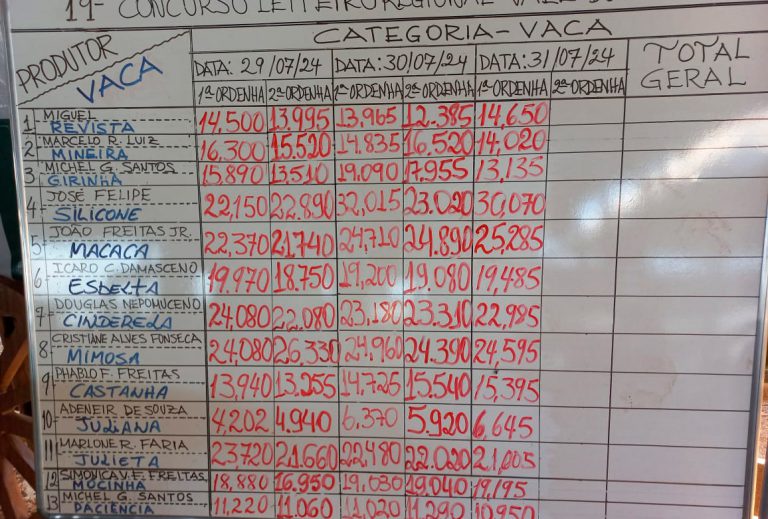 19º CONCURSO LEITEIRO REGIONAL
PRODUTOR VACA CATEGORIA - VACA TOTAL GERAL
DATA: 29/07/24 DATA: 30/07/24 DATA: 31/07/24
1ª ORDENHA 2ª ORDENHA 1ª ORDENHA 2ª ORDENHA 1ª ORDENHA 2ª ORDENHA
1 MIGUEL
REVISTA 14,500 13.995 13,965 12.385 14,650
2 MARCELO R. LUIZ
MINEIRA 16,300 15.520 14.835 16.520 14,020
3 MICHEL G. SANTOS
GIRINHA 15,890 13.510 19.090 17,955 13,135
4 JOSÉ FELIPE
SILICONE 22,150 22.890 32,015 23.020 30,070
5 JOÃO FREITAS JR.
MACACA 22,370 21.740 24,710 24.890 25,285
6 ICARO C. DAMASCENO
ESBELTA 19,970 18.750 19,200 19,080 19,485
7 DOUGLAS NEPOMUCENO
CINDERELA 24,080 22.080 23,180 23.310 22,985
8 CRISTIANE ALVES FONSECA
MIMOSA 24,080 26,330 24,960 24.390 24,595
9 PHABLO F. FREITAS
CASTANHA 13,940 13,255 14,725 15.540 15,395
10 ADENEIR DE SOUZA
JULIANA 4,202 4.940 6,370 5.920 6,645
11 MARLONE R. FARIA
JULIETA 23,720 21.660 22,480 22.020 21,005
12 SIMONICA V. F. FREITAS
MOCINHA 18,880 16,950 19,030 19,040 19,195
13 MICHEL G. SANTOS
PACIÊNCIA 11,220 11.060 11,020 11.290 10,950